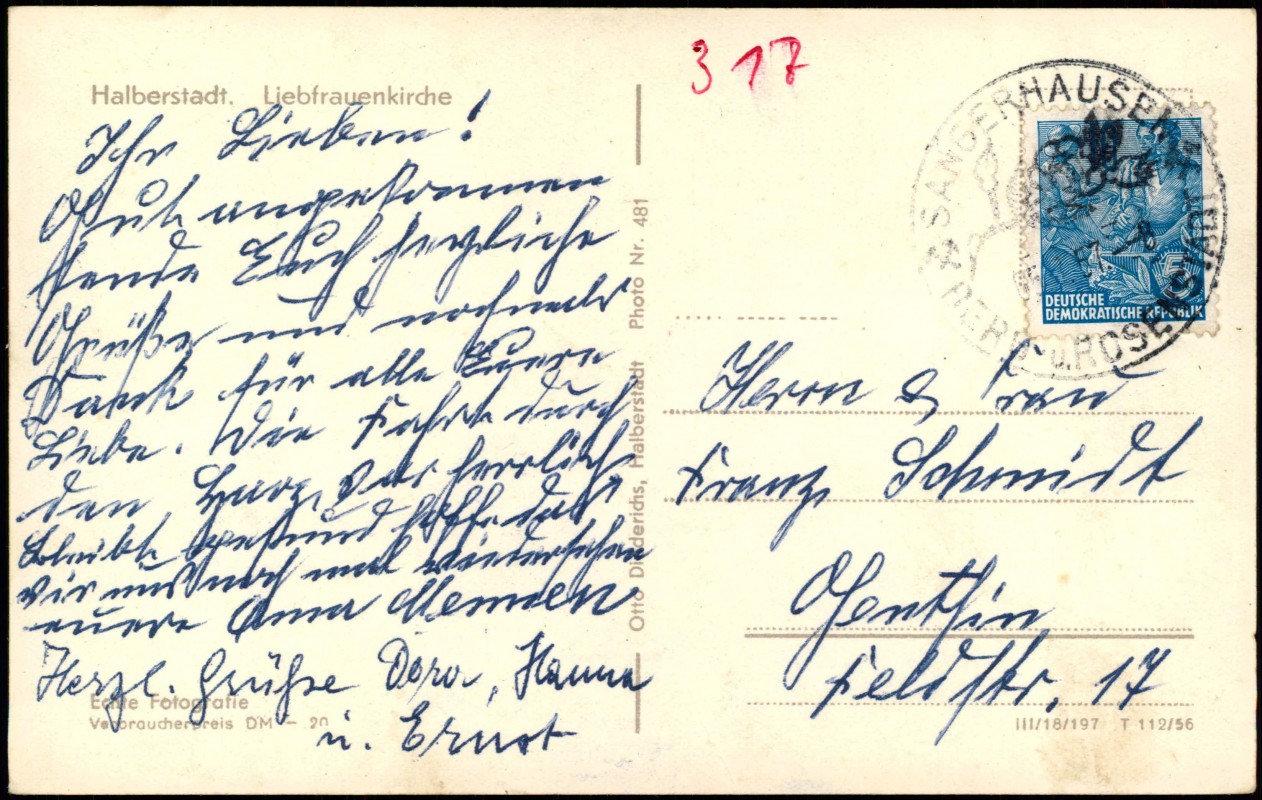 Halberstadt. Liebfrauenkirche
Ihr Lieben!
Gut angekommen
sende Euch herzliche
Grüße und nochmals
Dank für alle Euere
Liebe. Die Fahrt durch
den Harz war herrlich
Bleibt gesund hoffe das
wir uns noch mal wiedersehen
euere Anna
Herzl. Grüße Dora, Hanna
u. Ernst
Echte Fotografie
Verbraucherpreis DM -.20
Otto Diederichs, Halberstadt Photo Nr. 481
3 17
SANGERHAUSEN
BERG- U. ROSENSTADT
DEUTSCHE
DEMOKRATISCHE REPUBLIK
Herrn & Frau
Franz Schmidt
Genthin
Feldstr. 17
III/18/197 T 112/56